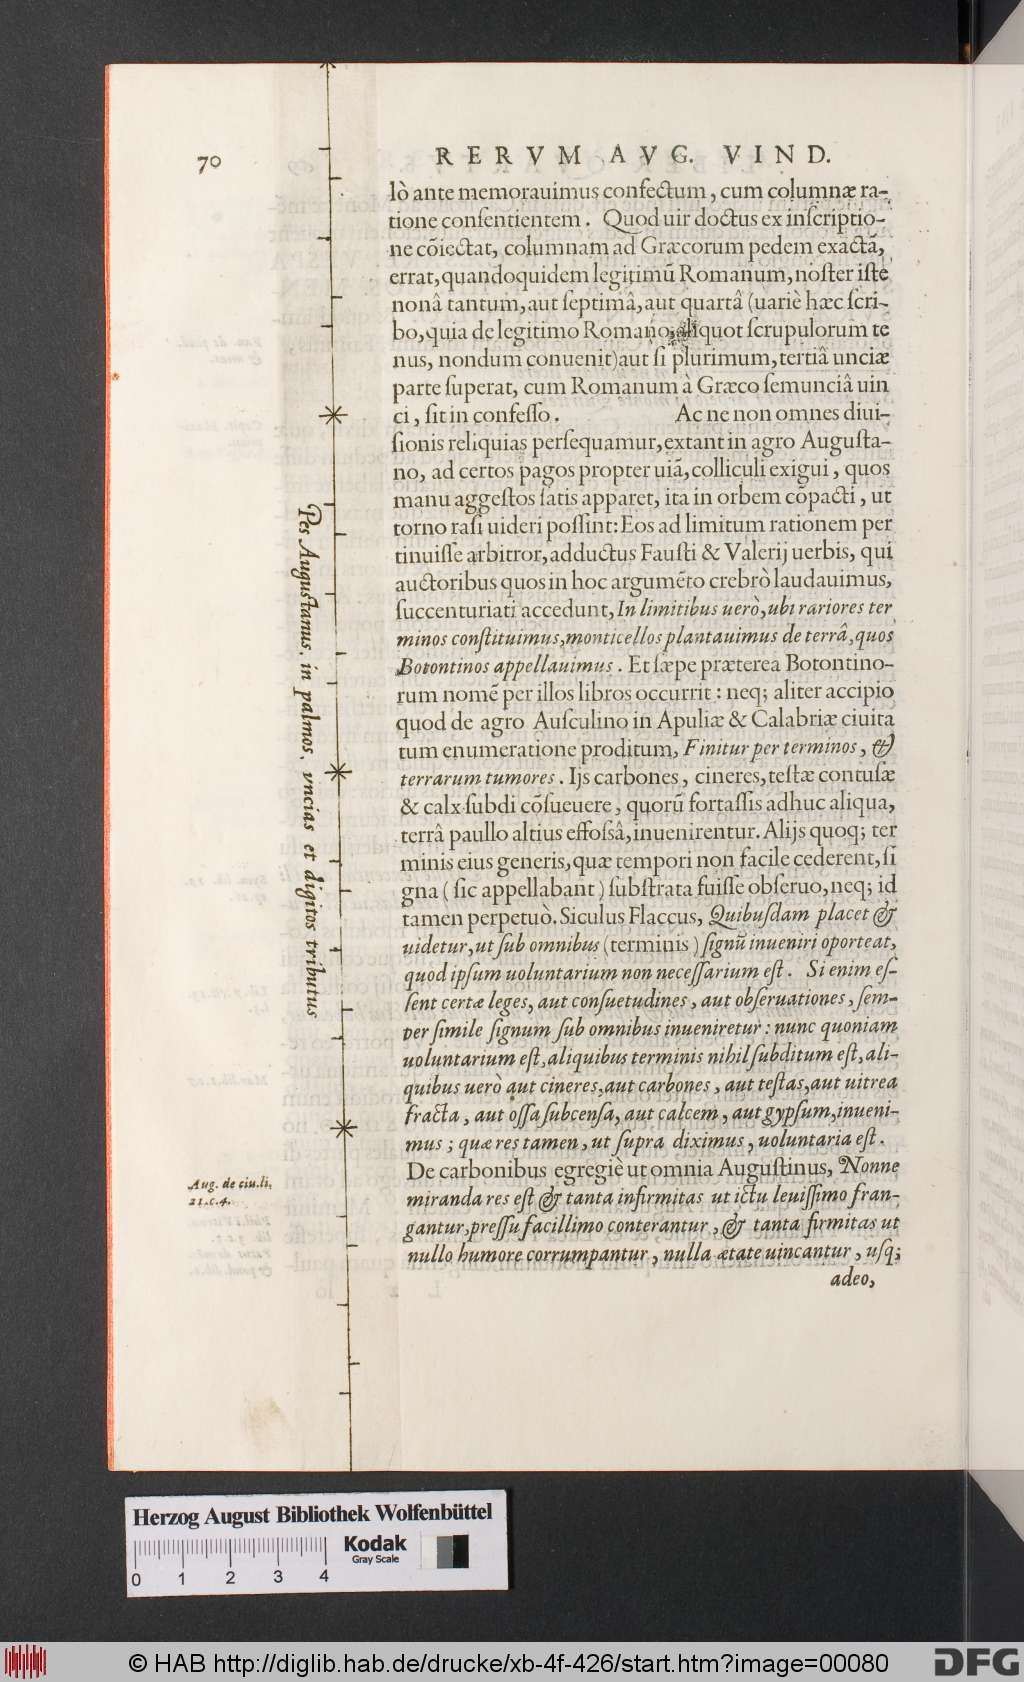 70
RERVM AVG. VIND.
lò ante memorauimus confectum, cum columnæ ra-
tione conſentientem. Quod uir doctus ex inſcriptio-
ne cõiectat, columnam ad Græcorum pedem exactã,
errat, quandoquidem legitimũ Romanum, noſter iſte
nonâ tantum, aut ſeptimâ, aut quartâ (uariè hæc ſcri-
bo, quia de legitimo Romano, aliquot ſcrupulorum te
nus, nondum conuenit) aut ſi plurimum, tertiâ unciæ
parte ſuperat, cum Romanum à Græco ſemunciâ uin
ci, ſit in confeſſo. Ac ne non omnes diui-
ſionis reliquias perſequamur, extant in agro Auguſta-
no, ad certos pagos propter uiã, colliculi exigui, quos
manu aggeſtos ſatis apparet, ita in orbem cõpacti, ut
torno raſi uideri poſſint: Eos ad limitum rationem per
tinuiſſe arbitror, adductus Fauſti & Valerij uerbis, qui
auctoribus quos in hoc argumẽto crebrò laudauimus,
ſuccenturiati accedunt, In limitibus uerò, ubi rariores ter
minos conſtituimus, monticellos plantauimus de terrâ, quos
Botontinos appellauimus. Et ſæpe præterea Botontino-
rum nomẽ per illos libros occurrit: neq; aliter accipio
quod de agro Auſculino in Apuliæ & Calabriæ ciuita
tum enumeratione proditum, Finitur per terminos, &
terrarum tumores. Ijs carbones, cineres, teſtæ contuſæ
& calx ſubdi cõſueuere, quorũ fortaſſis adhuc aliqua,
terrâ paullo altius effoſsâ, inuenirentur. Alijs quoq; ter
minis eius generis, quæ tempori non facile cederent, ſi
gna (ſic appellabant) ſubſtrata fuiſſe obſeruo, neq; id
tamen perpetuò. Siculus Flaccus, Quibuſdam placet &
uidetur, ut ſub omnibus (terminis) ſignũ inueniri oporteat,
quod ipſum uoluntarium non neceſſarium eſt. Si enim eſ-
ſent certæ leges, aut conſuetudines, aut obſeruationes, ſem-
per ſimile ſignum ſub omnibus inueniretur: nunc quoniam
uoluntarium eſt, aliquibus terminis nihil ſubditum eſt, ali-
quibus uerò aut cineres, aut carbones, aut teſtas, aut uitrea
fracta, aut oſſa ſubcenſa, aut calcem, aut gypſum, inueni-
mus; quæ res tamen, ut ſupra diximus, uoluntaria eſt.
De carbonibus egregiè ut omnia Auguſtinus, Nonne
miranda res eſt & tanta infirmitas ut ictu leuiſſimo fran-
gantur, preſſu facillimo conterantur, & tanta firmitas ut
nullo humore corrumpantur, nulla ætate uincantur, uſq;
adeo,
Pes Augustanus. in palmos. vncias et digitos tributus
Aug. de ciu. li.
21. c. 4.
Herzog August Bibliothek Wolfenbüttel
Kodak
Gray Scale
0 1 2 3 4
© HAB http://diglib.hab.de/drucke/xb-4f-426/start.htm?image=00080
DFG